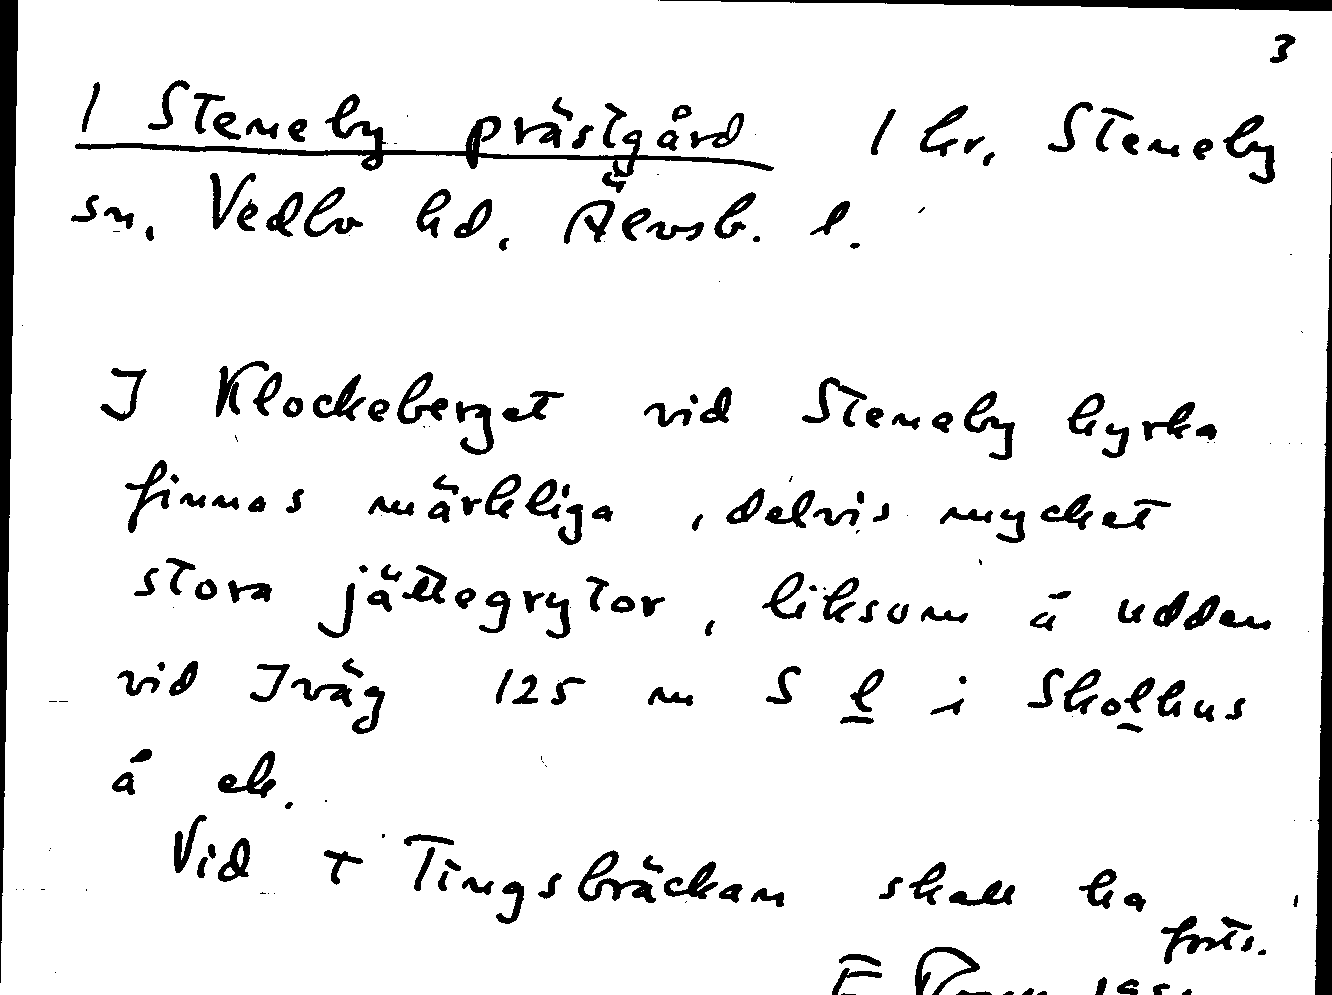 3
1 Steneby prästgård 1 kr, Steneby
sn, Vedbo hd, Älvsb. l.
I Klockeberget vid Steneby kyrka
finnas märkliga, delvis mycket
stora jättegrytor, liksom å udden
vid Iväg 125 m S l i Skolhus
å ek.
Vid + Tingsbräckan skall ha
forts.